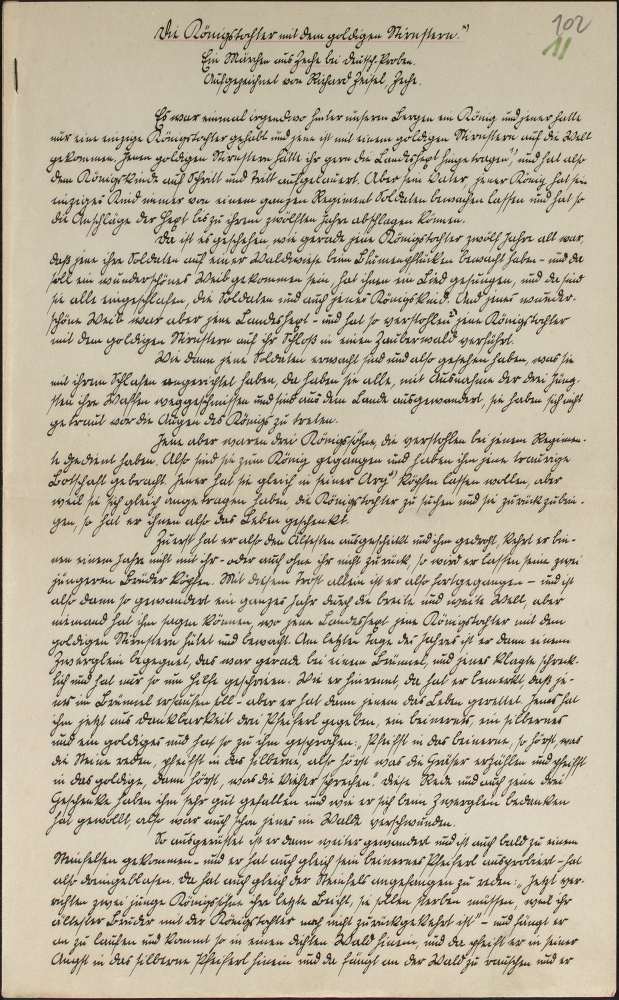 102
11
Die Königstochter mit dem goldigen Stirnstern.
Ein Märchen aus Zeche bei Deutsch-Proben.
Aufgezeichnet von Richard Zeisel, Zeche.
Es war einmal irgendwo hinter unseren Bergen ein König und jener hatte
nur eine einzige Königstochter gehabt und jene ist mit einem goldigen Stirnstern auf die Welt
gekommen. Jenen goldigen Stirnstern hätte ihr gern die Landshext hingetragen, und hat also
dem Königskinde auf Schritt und Tritt aufgelauert. Aber sein Vater, jener König hat sein
einziges Kind immer von einem ganzen Regiment Soldaten bewachen lassen und hat so
die Anschläge der Hext bis zu ihrem zwölften Jahre abschlagen können.
Da ist es geschehen, wie gerade jene Königstochter zwölf Jahre alt war,
daß jene ihre Soldaten auf einer Waldwiese beim Blumenpflücken bewacht haben – und da
soll ein wunderschönes Weib gekommen sein, hat ihnen ein Lied gesungen, und da sind
sie alle eingeschlafen, die Soldaten und auch jenes Königskind. Und jenes wunder-
schöne Weib war aber jene Landshext – und hat so verstohlen jene Königstochter
mit dem goldigen Stirnstern auf ihr Schloß in einen Zauberwald verführt.
Wie dann jene Soldaten erwacht sind und also gesehen haben, was sie
mit ihrem Schlafen angerichtet haben, da haben sie alle, mit Ausnahme der drei Jüng-
sten ihre Waffen weggeschmissen und sind aus dem Lande ausgewandert, sie haben sich nicht
getraut vor die Augen des Königs zu treten.
Jene aber waren drei Königssöhne, die verstohlen bei jenem Regimen-
te gedient haben. Also sind sie zum König gegangen und haben ihm jene traurige
Botschaft gebracht. Jener hat sie gleich in seiner Arg köpfen lassen wollen, aber
weil sie sich gleich angetragen haben die Königstochter zu suchen und sie zurückzubrin-
gen, so hat er ihnen also das Leben geschenkt.
Zuerst hat er also den Ältesten ausgeschickt und ihm gedroht, kehrt er bin-
nen einem Jahr nicht mit ihr – oder auch ohne ihr nicht zurück, so wird er lassen seine zwei
jüngeren Brüder köpfen. Mit diesem Trost allein ist er also fortgegangen – und ist
also dann so gewandert ein ganzes Jahr durch die breite und weite Welt, aber
niemand hat ihm sagen können, wo jene Landshext jene Königstochter mit dem
goldigen Stirnstern hütet und bewacht. Am letzten Tage des Jahres ist er dann einem
Zwerglein begegnet, das war gerade bei einem Brünnel, und jenes klagte schreck-
lich und hat nur so um Hilfe geschrieen. Wie er hinrennt, da hat er bemerkt, daß je-
nes im Brünnel ersaufen soll – aber er hat dann jenem das Leben gerettet. Jenes hat
ihm jetzt aus Dankbarkeit drei Pfeiferl gegeben, ein beinernes, ein silbernes
und ein goldiges und hat so zu ihm gesprochen: „Pfeifst in das beinerne, so hörst, was
die Steine reden, pfeifst in das silberne, also hörst was die Gräser erzählen und pfeifst
in das goldige, dann hörst, was die Viecher sprechen.“ Diese Rede und auch jene drei
Geschenke haben ihm sehr gut gefallen und wie er sich beim Zwerglein bedanken
hat gewollt, also war auch schon jenes im Walde verschwunden.
So ausgerüstet ist er dann weiter gewandert und ist auch bald zu einem
Steinfelsen gekommen – und er hat auch gleich sein beinernes Pfeiferl ausprobiert – hat
also dreingeblasen. Da hat auch gleich der Steinfels angefangen zu reden: „Jetzt ver-
richten zwei junge Königssöhne ihre letzte Beicht, sie sollen sterben müssen, weil ihr
ältester Bruder mit der Königstochter noch nicht zurückgekehrt ist“ – und fängt er
an zu laufen und kommt so in einen dichten Wald hinein, und da pfeift er in seiner
Angst in das silberne Pfeiferl hinein und da fängt an der Wald zu rauschen und er